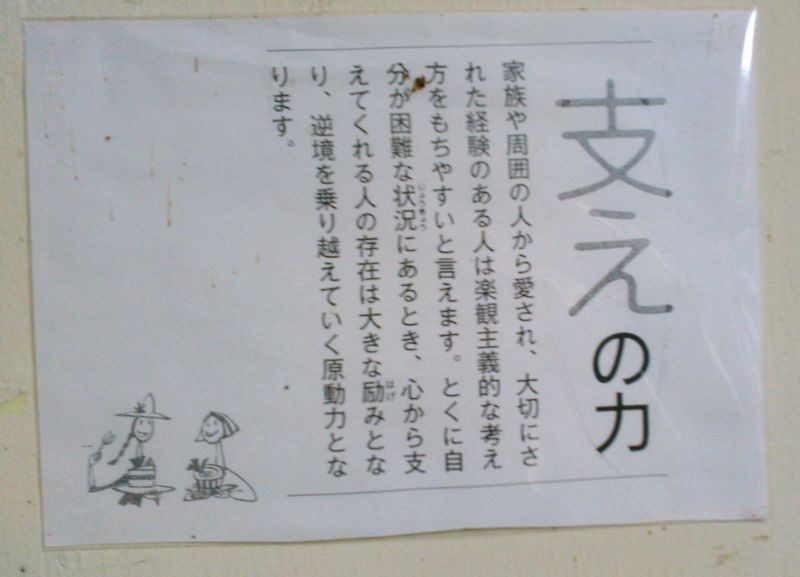 支えの力
家族や周囲の人から愛され、大切にさ
れた経験のある人は楽観主義的な考え
方をもちやすいと言えます。とくに自
分が困難な状況にあるとき、心から支
えてくれる人の存在は大きな励みとな
り、逆境を乗り越えていく原動力とな
ります。
じょうきょう
はげ